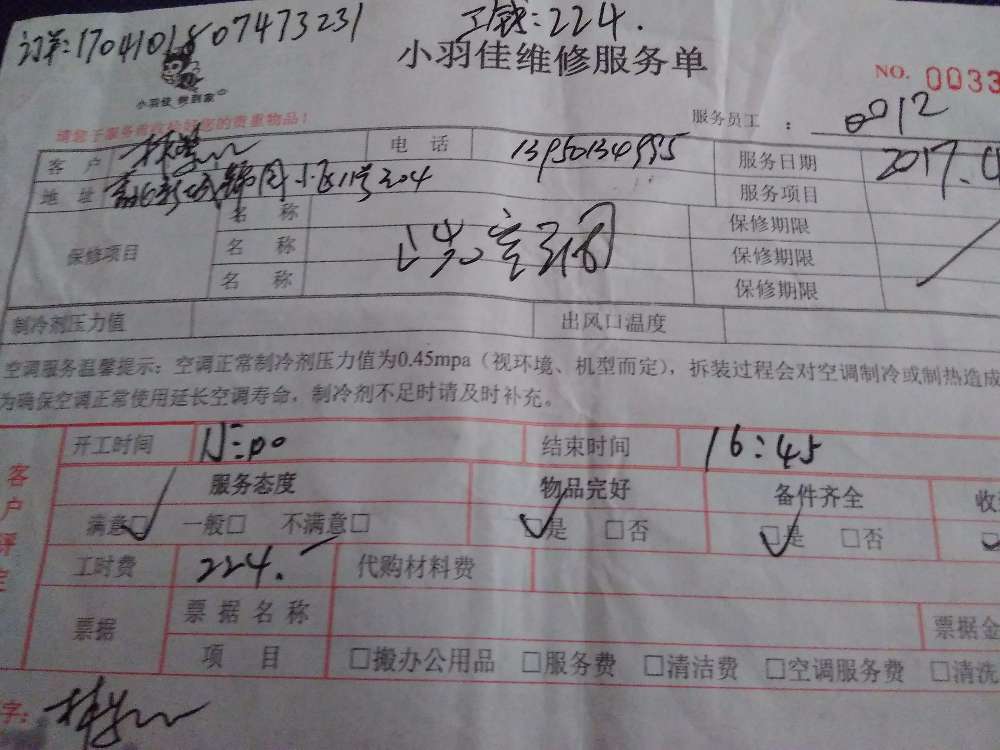 订单:1704101807473231 工钱:224.
小羽佳维修服务单
NO. 0033
小羽佳 帮到家
请您于服务前收拾好您的贵重物品!
服务员工 : 0012
客户 电话 13950134995 服务日期 2017.4
地址 小区11号304 服务项目
保修项目 名称 保修期限
名称 洗空调 保修期限
名称 保修期限
制冷剂压力值 出风口温度
空调服务温馨提示:空调正常制冷剂压力值为0.45mpa(视环境、机型而定),拆装过程会对空调制冷或制热造成
为确保空调正常使用延长空调寿命,制冷剂不足时请及时补充。
客户评定
开工时间 15:00 结束时间 16:45
服务态度 物品完好 备件齐全 收
满意□ 一般□ 不满意□ □是 □否 □是 □否
工时费 224. 代购材料费
票据 票据名称 票据金
项目 □搬办公用品 □服务费 □清洁费 □空调服务费 □清洗
字: